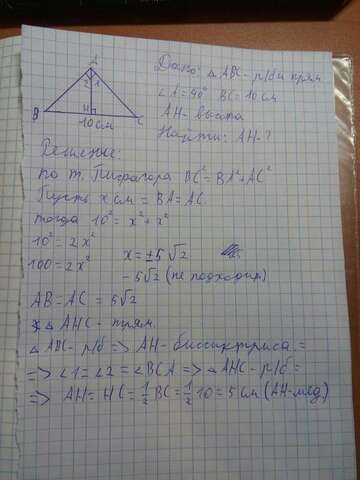 A
2 1
B
H
C
10 см
Дано: △ABC - р/б и прям
∠A = 90° BC = 10 см
AH - высота
Найти: AH - ?
Решение:
по т. Пифагора BC² = BA² + AC²
Пусть x см = BA = AC.
тогда 10² = x² + x²
10² = 2x²
100 = 2x²
x = ±5√2
-5√2 (не подходит)
AB = AC = 5√2
△ AHC - прям.
△ ABC - р/б => AH - биссиктриса =
=> ∠1 = ∠2 = ∠BCA => △AHC - р/б =
=> AH = HC = 1/2 BC = 1/2 10 = 5 см (AH - мед)